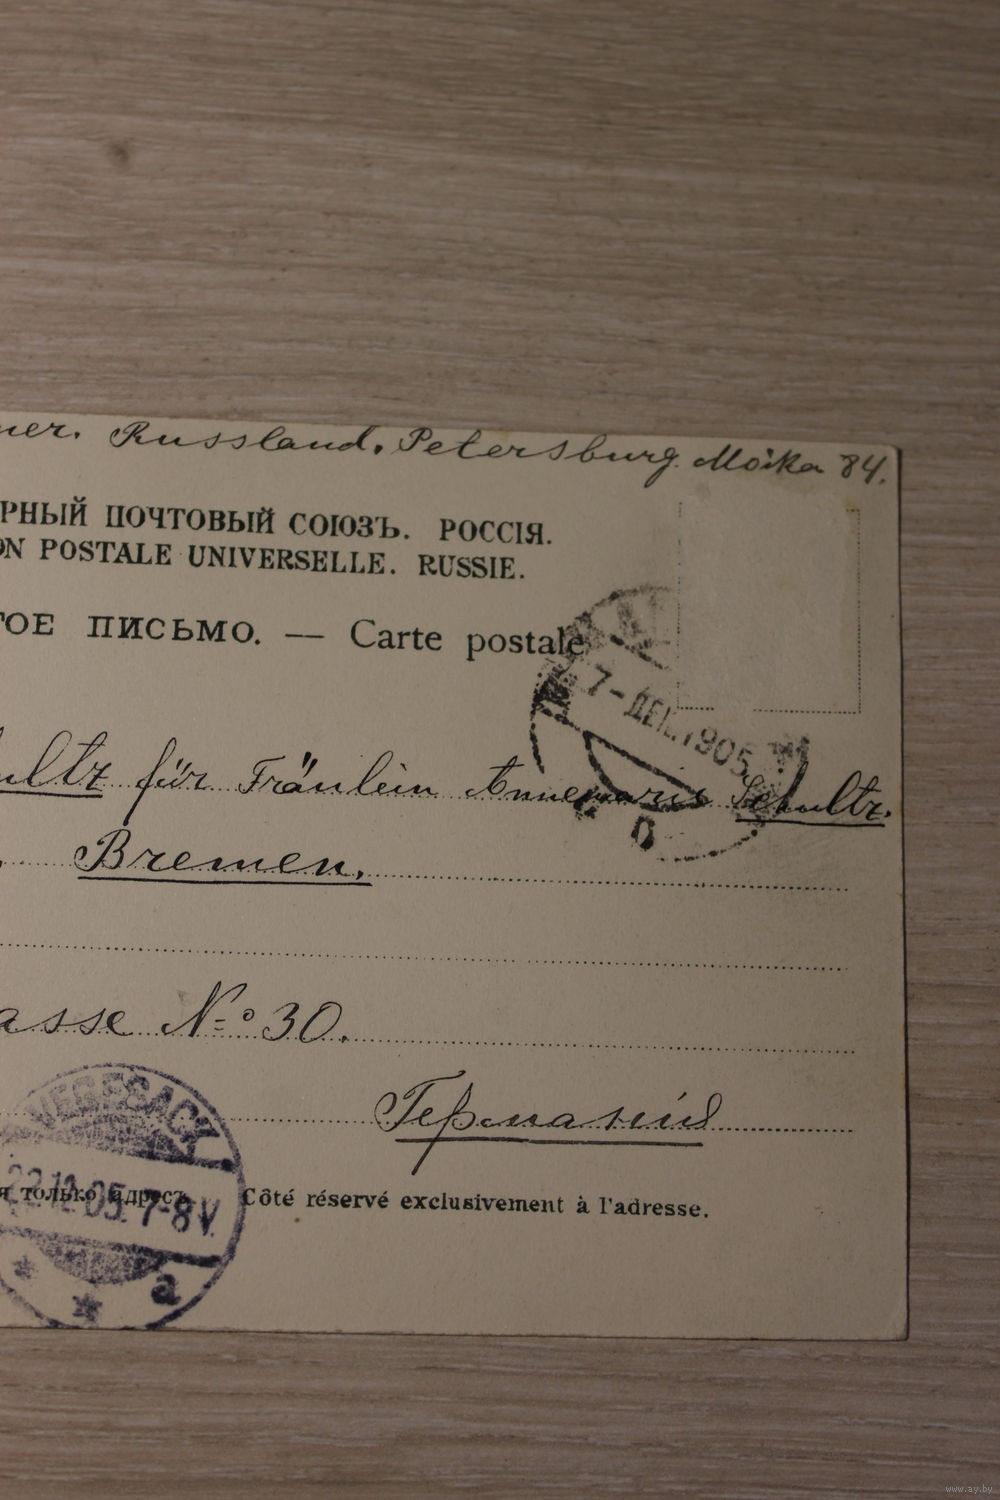 ner. Russland. Petersburg. Moika 84.
РНЫЙ ПОЧТОВЫЙ СОЮЗЪ. РОССІЯ.
ON POSTALE UNIVERSELLE. RUSSIE.
ТОЕ ПИСЬМО. — Carte postale
7-ДЕК.1905
ultz für Fräulein Annemarie Schultz.
Bremen.
asse No 30.
Германія
VEGESACK
22.12.05. 7-8V.
a
я только адресъ. Côté réservé exclusivement à l'adresse.
www.ay.by